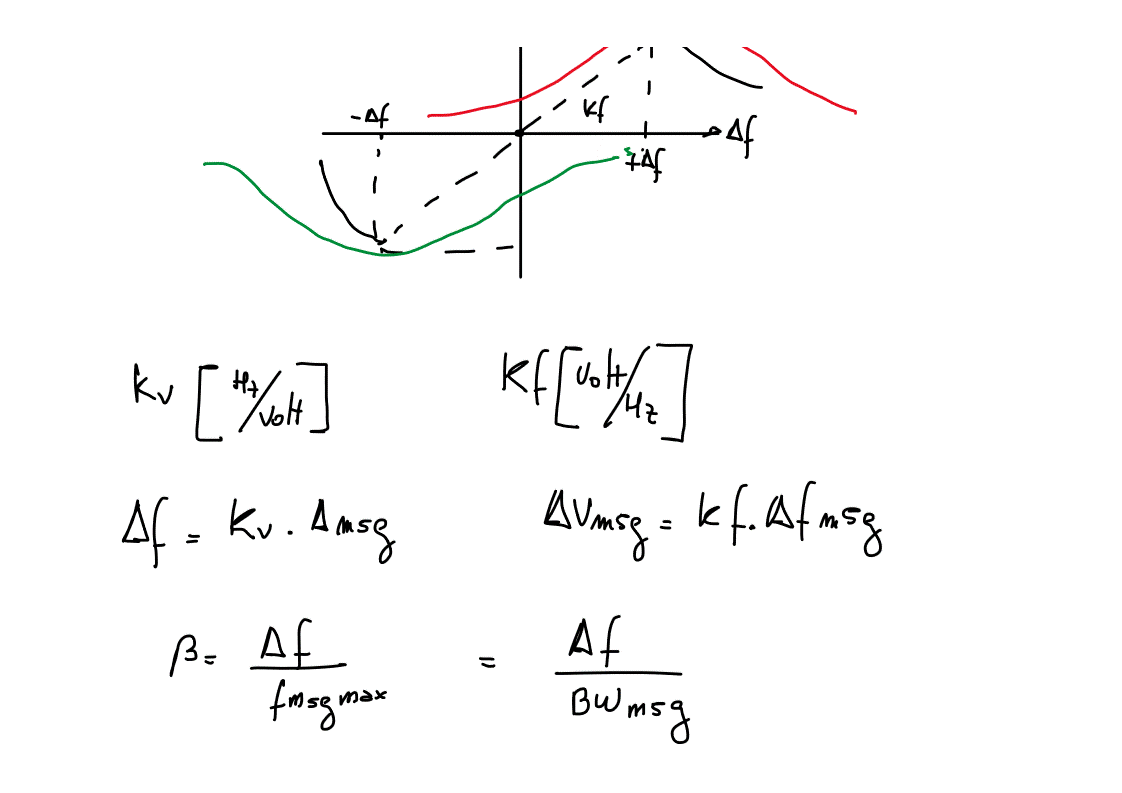 -Δf kf Δf
+Δf
kv [Hz/volt] kf [volt/Hz]
Δf = kv . Δmsg ΔVmsg = kf . Δfmsg
β = Δf / fmsgmax = Δf / BWmsg